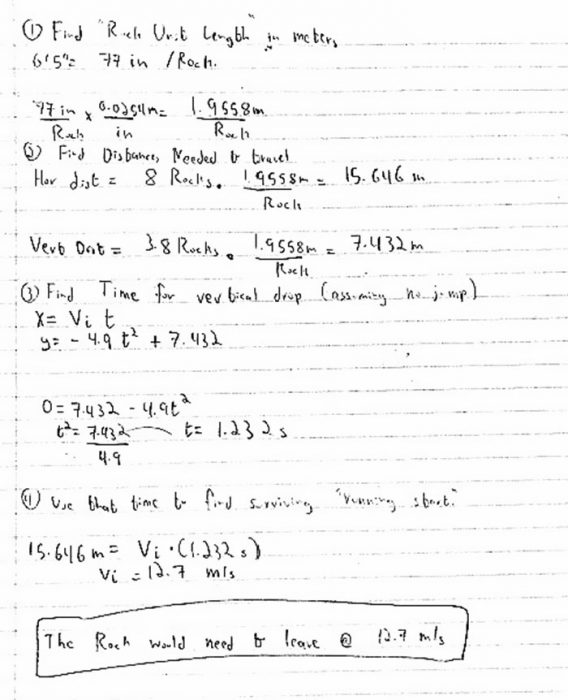 ① Find "Rock Unit Length" in meters
6'5"= 77 in /Rock.
77 in x 0.0254m = 1.9558m
Rock in Rock
② Find Distances Needed to travel
Hor dist = 8 Rocks . 1.9558m = 15.646 m
Rock
Vert Dist = 3.8 Rocks . 1.9558m = 7.432m
Rock
③ Find Time for vertical drop (assuming no jump)
X= Vi t
y= - 4.9 t² + 7.432
0= 7.432 - 4.9t²
t²= 7.432 t= 1.232 s
4.9
④ Use that time to find surviving "running start."
15.646 m = Vi · (1.232 s)
Vi = 12.7 m/s
The Rock would need to leave @ 12.7 m/s